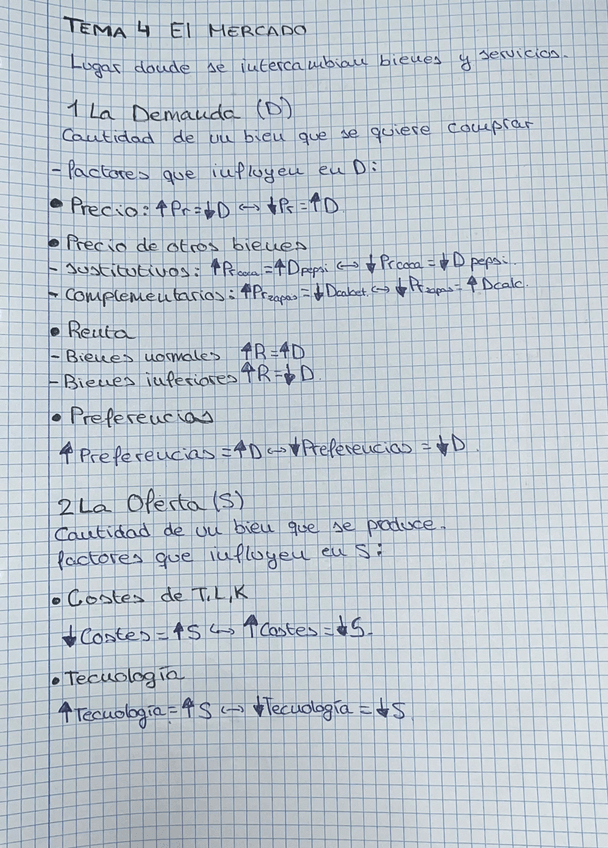 TEMA 4 El MERCADO
Lugar donde se intercambian bienes y servicios.
1 La Demanda (D)
Cantidad de un bien que se quiere comprar
- factores que influyen en D:
• Precio: ↑Pr = ↓D ↔ ↓Pr = ↑D
• Precio de otros bienes
- Sustitutivos: ↑Pr coca = ↑D pepsi ↔ ↓Pr coca = ↓D pepsi.
- Complementarias: ↑Pr zapas = ↓D calcet. ↔ ↓Pr zapas = ↑Dcalc.
• Renta
- Bienes normales ↑R = ↑D
- Bienes inferiores ↑R = ↓D.
• Preferencias
↑ Preferencias = ↑D ↔ ↓Preferencias = ↓D.
2 La Oferta (S)
Cantidad de un bien que se produce.
factores que influyen en S:
• Costes de T, L, K
↓Costes = ↑S ↔ ↑Costes = ↓S.
• Tecnología
↑Tecnología = ↑S ↔ ↓Tecnología = ↓S.